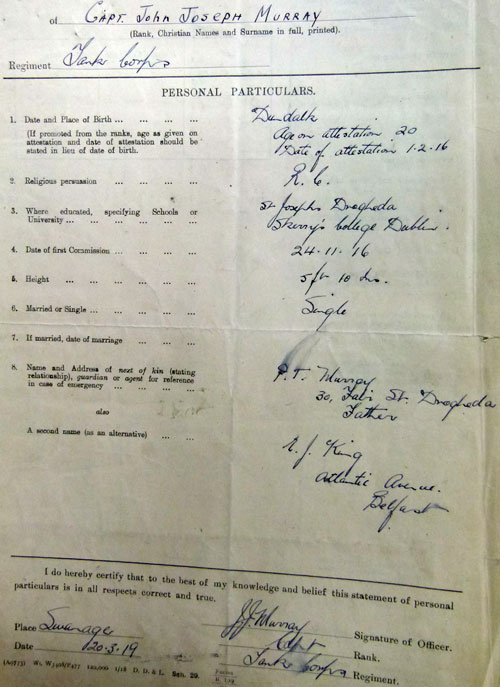 of CAPT. JOHN JOSEPH MURRAY
(Rank, Christian Names and Surname in full, printed).
Regiment Tank Corps
PERSONAL PARTICULARS.
1. Date and Place of Birth ... ... ... ... Dundalk
(If promoted from the ranks, age as given on attestation and date of attestation should be stated in lieu of date of birth. Age on attestation 20
Date of attestation 1-2-16
2. Religious persuasion ... ... ... ... R. C.
3. Where educated, specifying Schools or University ... ... ... ... ... St Josephs Drogheda
Skerry's College Dublin.
4. Date of first Commission ... ... ... 24-11-16
5. Height ... ... ... ... ... 5 ft 10 ins.
6. Married or Single ... ... ... ... Single
7. If married, date of marriage ... ... ...
8. Name and Address of next of kin (stating relationship), guardian or agent for reference in case of emergency ... ... ... ... P. T. Murray
30, St. Drogheda
Father
also
A second name (as an alternative) ... ... J. King
Atlantic Avenue.
Belfast
I do hereby certify that to the best of my knowledge and belief this statement of personal
particulars is in all respects correct and true.
Place Swanage
J.J. Murray Signature of Officer.
Capt Rank.
Date 20-3-19
Tank Corps Regiment.
1/18 D. D. & L. Sch. 20.